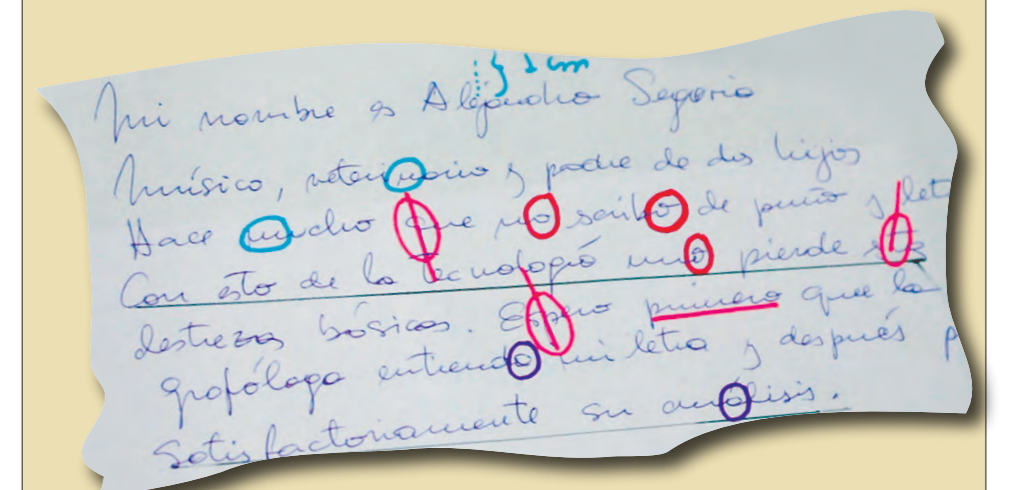 1 cm
Mi nombre es Alejandro Segovia
Músico, veterinario y padre de dos hijos
Hace mucho que no escribo de puño y let
Con esto de la tecnología uno pierde
destrezas básicas. Espero primero que la
grafóloga entienda mi letra y después p
satisfactoriamente su análisis.